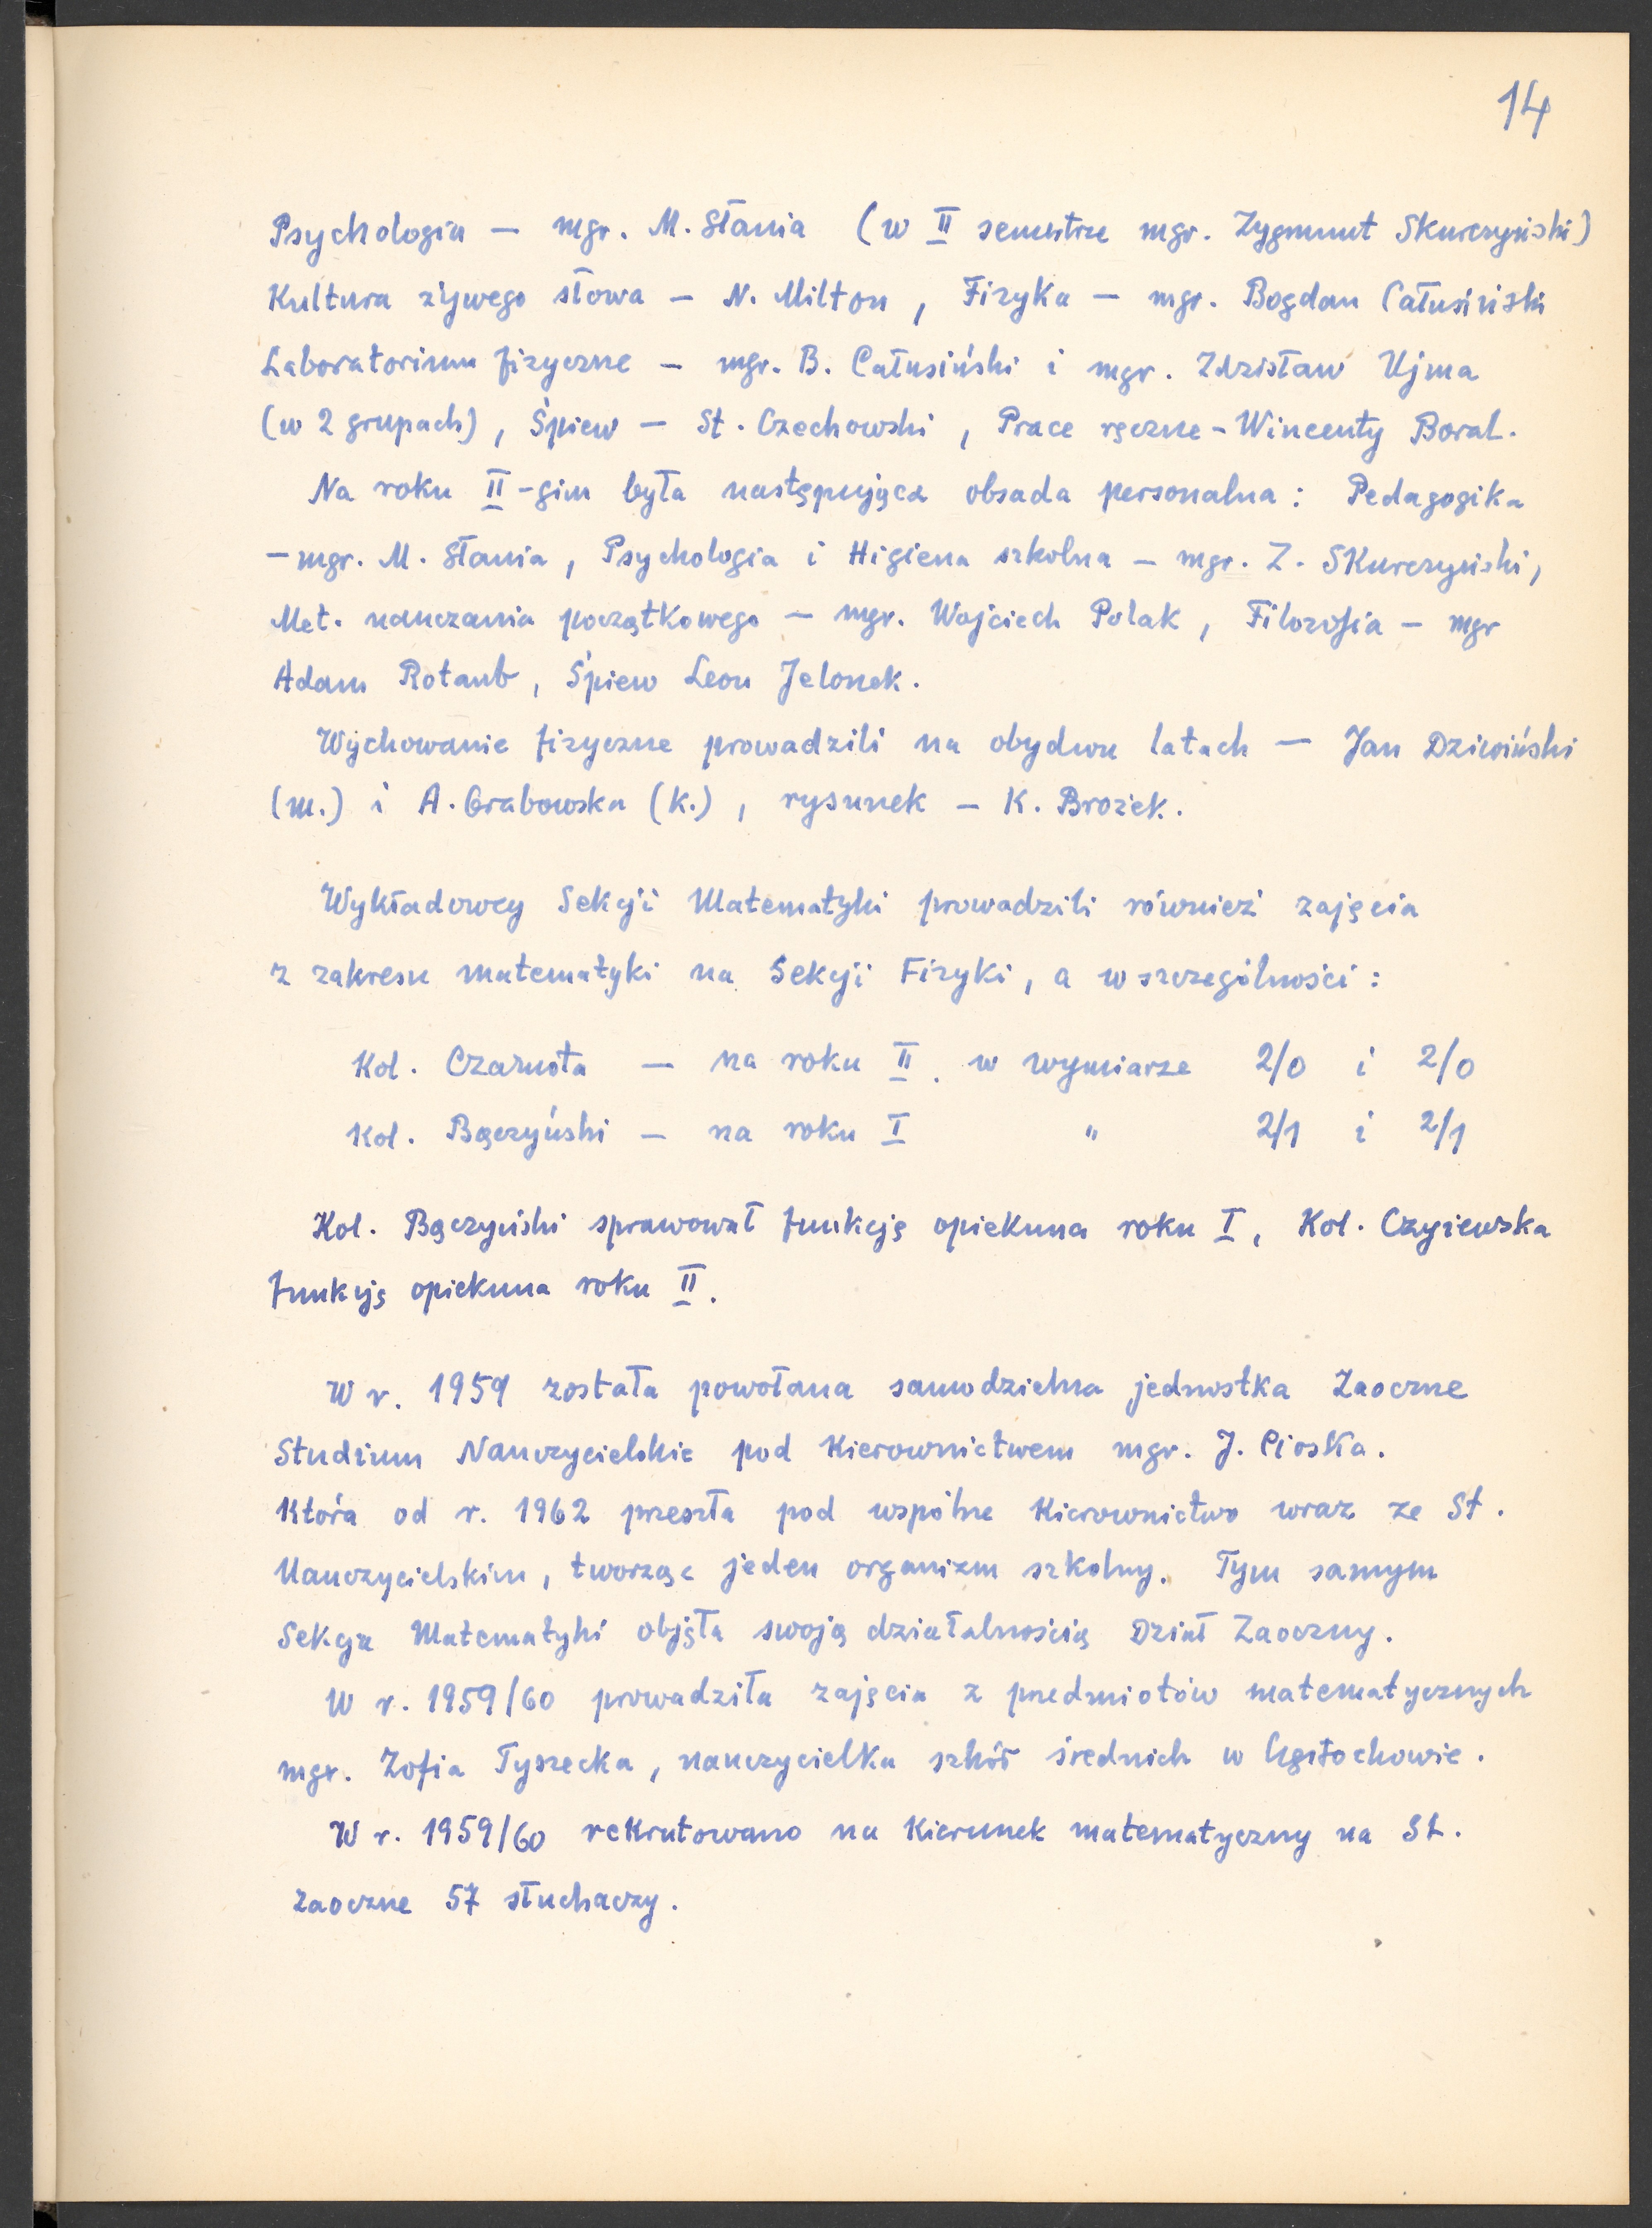 14
Psychologia — mgr. M. Stania (w II semestrze mgr. Zygmunt Skurczyński)
Kultura żywego słowa — N. Milton, Fizyka — mgr. Bogdan Całusiński
Laboratorium fizyczne — mgr. B. Całusiński i mgr. Zdzisław Ujma
(w 2 grupach), Śpiew — St. Czechowski, Prace ręczne - Wincenty Boral.
Na roku II-gim była następująca obsada personalna: Pedagogika
— mgr. M. Stania, Psychologia i Higiena szkolna — mgr. Z. Skurczyński,
Met. nauczania początkowego — mgr. Wojciech Polak, Filozofia — mgr
Adam Rotaub, Śpiew Leon Jelonek.
Wychowanie fizyczne prowadzili na obydwu latach — Jan Dziwiński
(m.) i A. Grabowska (k.), rysunek — K. Brożek.
Wykładowcy Sekcji Matematyki prowadzili również zajęcia
z zakresu matematyki na Sekcji Fizyki, a w szczególności:
Kol. Czarnota — na roku II. w wymiarze 2/0 i 2/0
Kol. Bączyński — na roku I " 2/1 i 2/1
Kol. Bączyński sprawował funkcję opiekuna roku I, Kol. Czyżewska
funkcję opiekuna roku II.
W r. 1959 została powołana samodzielna jednostka Zaoczne
Studium Nauczycielskie pod kierownictwem mgr. J. Cioska.
która od r. 1962 przeszła pod wspólne kierownictwo wraz ze St.
Nauczycielskim, tworząc jeden organizm szkolny. Tym samym
Sekcja Matematyki objęła swoją działalnością Dział Zaoczny.
W r. 1959/60 prowadziła zajęcia z przedmiotów matematycznych
mgr. Zofia Tyszecka, nauczycielka szkół średnich w Częstochowie.
W r. 1959/60 rekrutowano na kierunek matematyczny na St.
Zaoczne 57 słuchaczy.